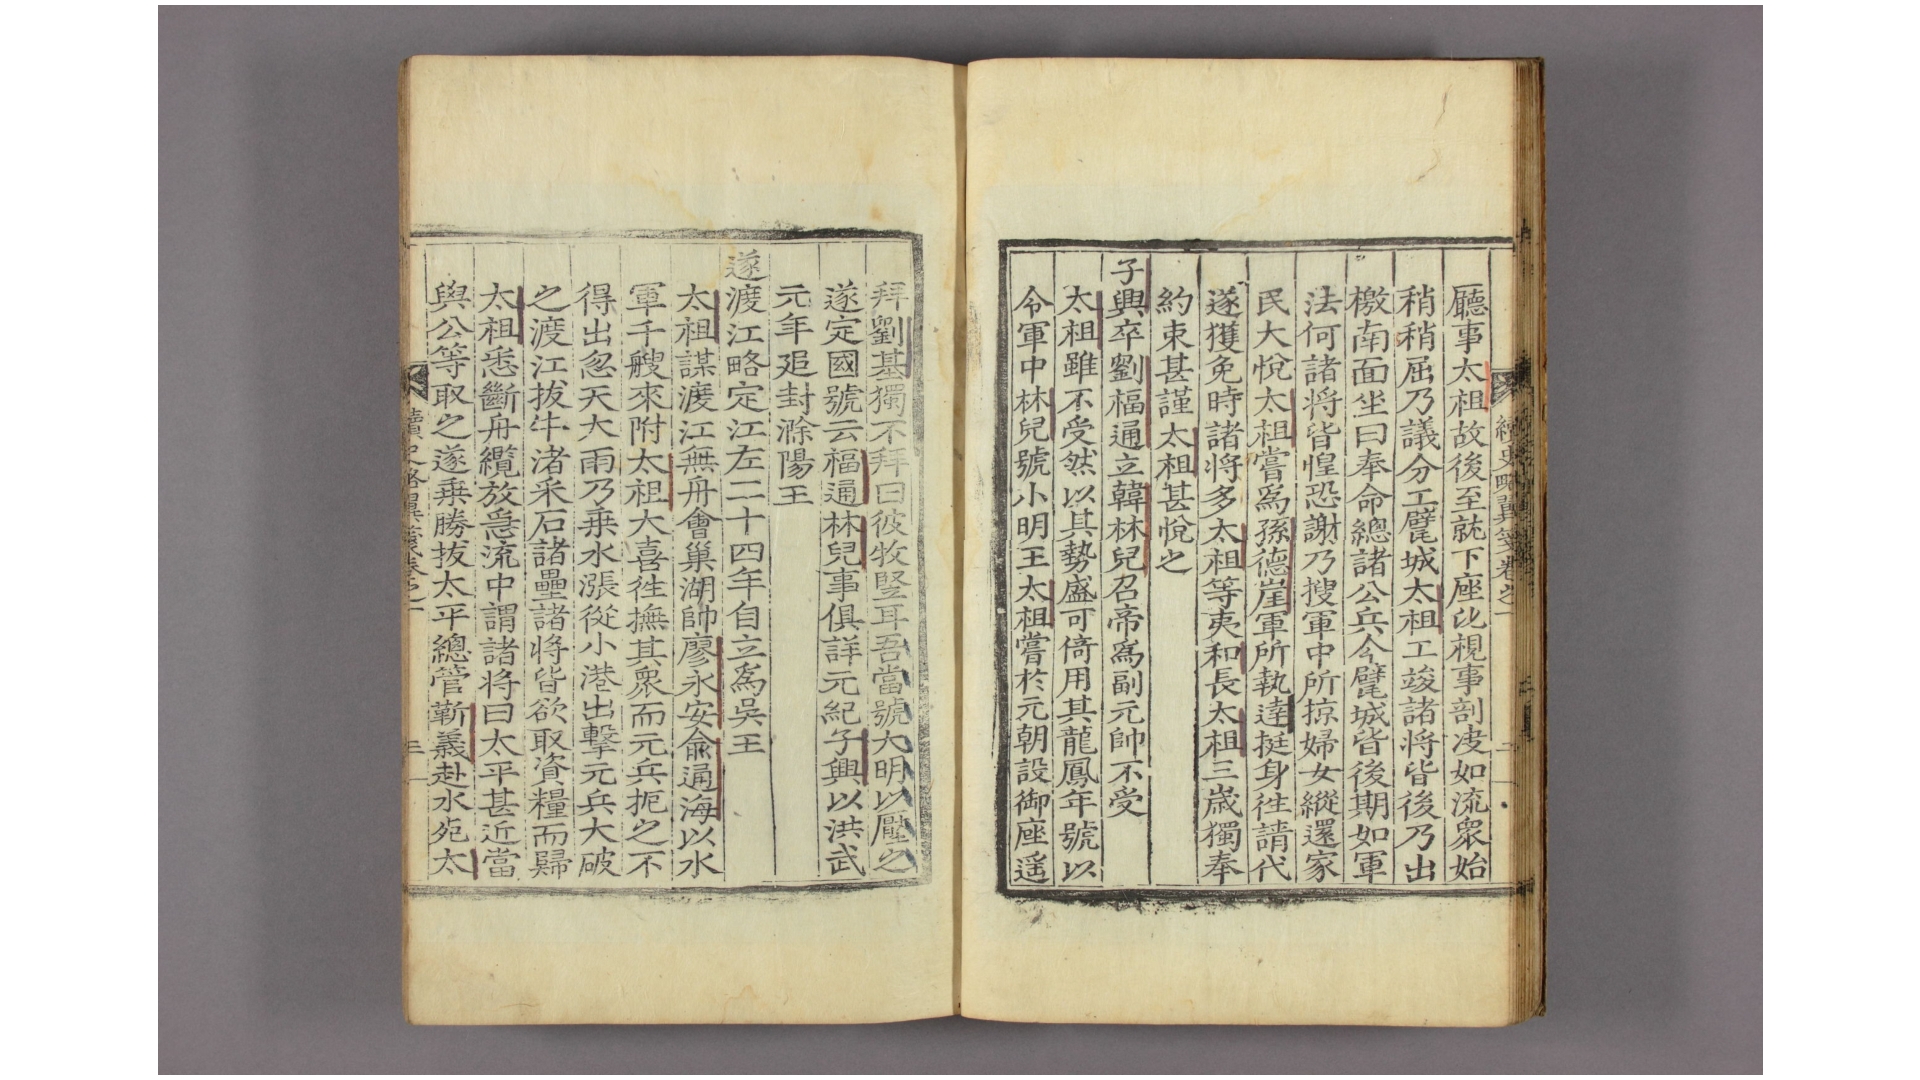 續史略翼箋卷之一
廳事太祖故後至就下座比視事剖决如流衆始
稍稍屈乃議分工甓城太祖工竣諸將皆後乃出
檄南面坐曰奉命總諸公兵今甓城皆後期如軍
法何諸將皆惶恐謝乃搜軍中所掠婦女縱還家
民大悅太祖嘗爲孫德崖軍所執達挺身徃請代
遂獲免時諸將多太祖等夷和長太祖三歲獨奉
約束甚謹太祖甚悅之
子興卒劉福通立韓林兒召帝爲副元帥不受
太祖雖不受然以其勢盛可倚用其龍鳳年號以
令軍中林兒號小明王太祖嘗於元朝設御座遥
拜劉基獨不拜曰彼牧竪耳吾當號大明以壓之
遂定國號云福通林兒事俱詳元紀子興以洪武
元年追封滁陽王
遂渡江略定江左二十四年自立爲吳王
太祖謀渡江無舟會巢湖帥廖永安兪通海以水
軍千艘來附太祖大喜徃撫其衆而元兵扼之不
得出忽天大雨乃乘水漲從小港出擊元兵大破
之渡江拔牛渚采石諸壘諸將皆欲取資糧而歸
太祖悉斷舟纜放急流中謂諸將曰太平甚近當
與公等取之遂乘勝拔太平總管靳義赴水死太
續史略翼箋卷之一
三